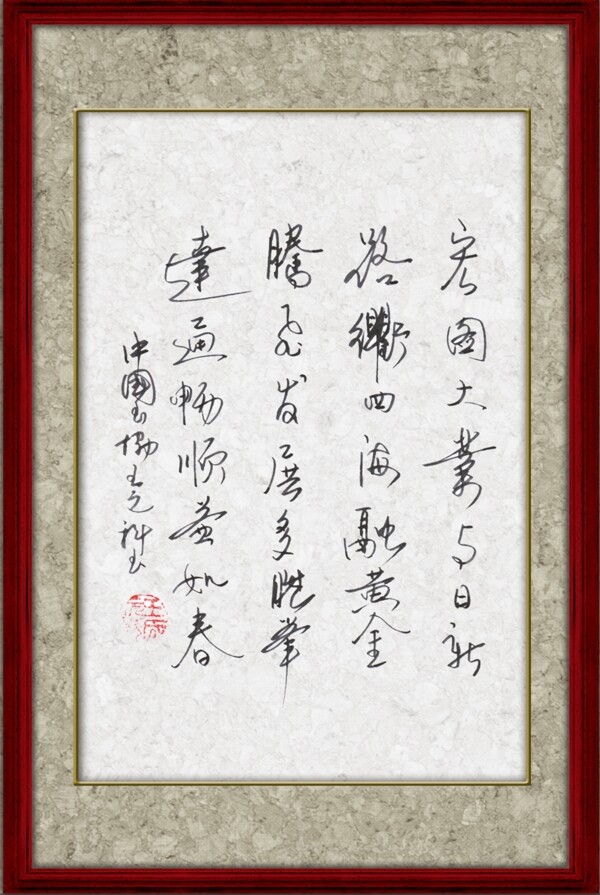 宏图大業与日新
路衢四海融黄金
腾飞发展多胜举
達通畅顺益如春
中国书协王